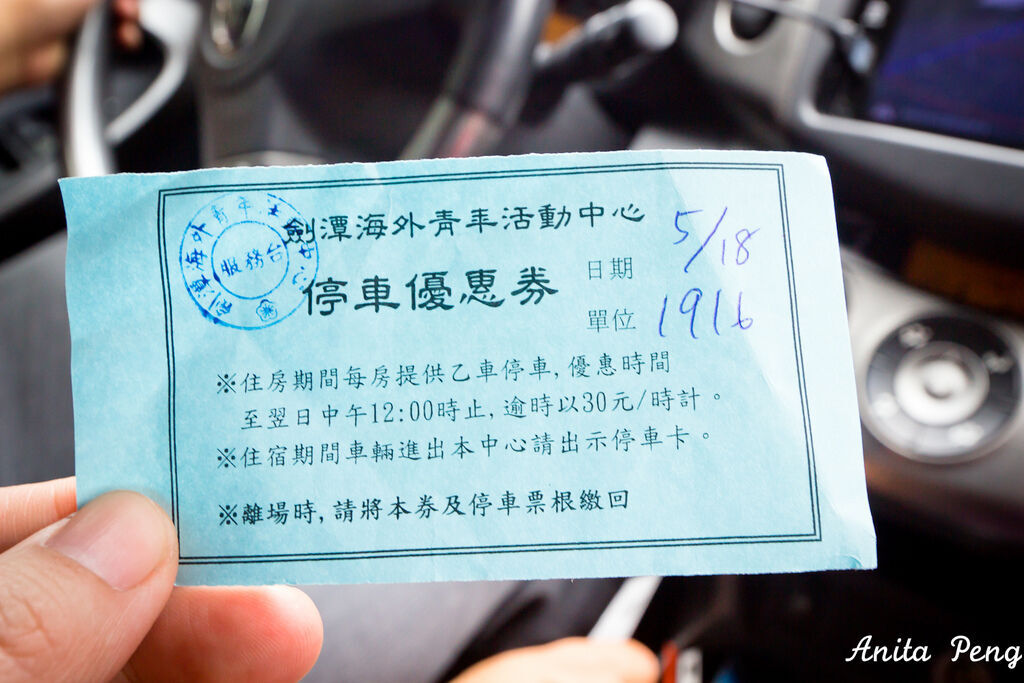 劍潭海外青年活動中心
停車優惠券
日期 5/18
單位 1916
劍潭海外青年活動中心
服務台
※住房期間每房提供乙車停車,優惠時間
至翌日中午12:00時止,逾時以30元/時計。
※住宿期間車輛進出本中心請出示停車卡。
※離場時,請將本券及停車票根繳回
Anita Peng